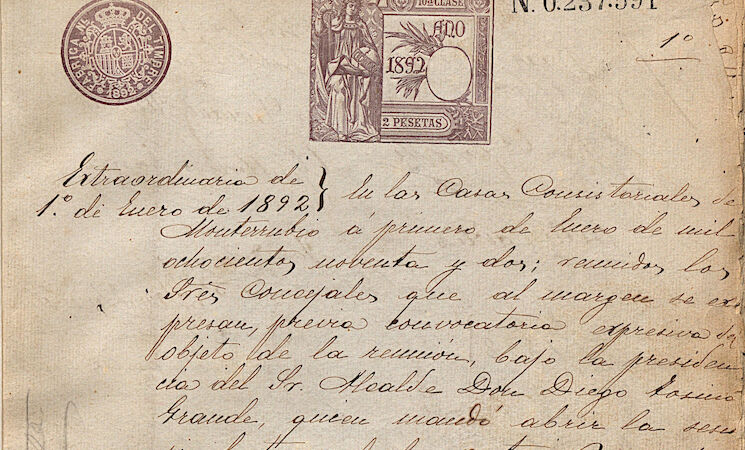 FABRICA NL. DEL TIMBRE
1892
10ª CLASE
AÑO
1892
2 PESETAS
N. 0.237.591
1º
Extraordinaria de
1.º de Enero de 1892
En las Casas Consistoriales de
Monterrubio á primero de Enero de mil
ochocientos noventa y dos; reunidos los
Sres Concejales que al margen se ex
presan, previa convocatoria expresiva del
objeto de la reunión, bajo la presiden
cia del Sr. Alcalde Don Diego
Grande, quien mandó abrir la sesi